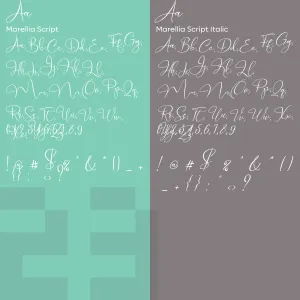 Aa
Marellia Script
Aa, Bb, Cc, Dd, Ee, Ff, Gg,
Hh, Ii, Jj, Kk, Ll,
Mm, Nn, Oo, Pp, Qq,
Rr, Ss, Tt, Uu, Vv, Ww,
3,4,5,6,7,8,9
! @ # $ % ^ & * ( ) _ +
Aa
Marellia Script Italic
Aa, Bb, Cc, Dd, Ee, Ff, Gg,
Hh, Ii, Jj, Kk, Ll,
Mm, Nn, Oo, Pp, Qq,
Rr, Ss, Tt, Uu, Vv, Ww,
3,4,5,6,7,8,9
! @ # $ % ^ & * ( )
_ + { } : " < > ?